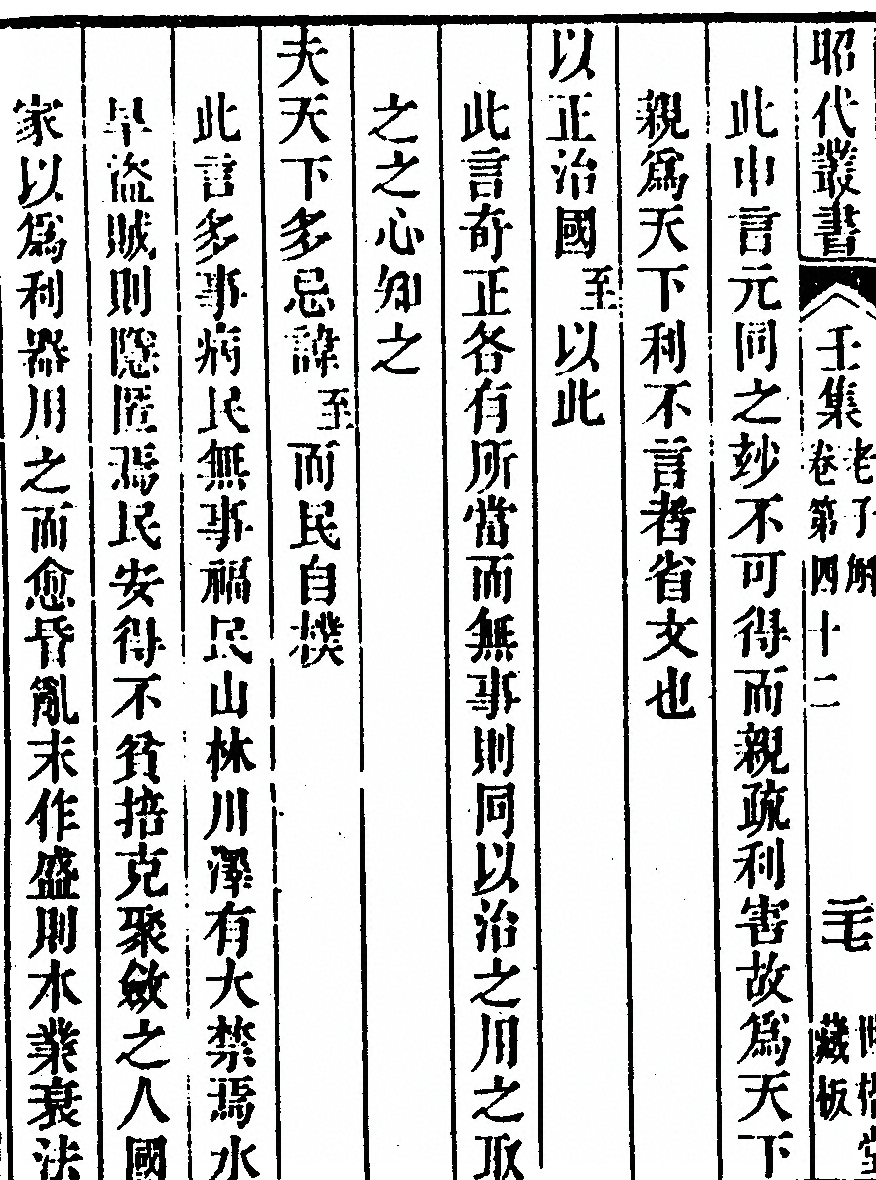 昭代叢書 壬集 老子解 卷第四十二 毛 世楷堂 藏板
此申言元同之玅不可得而親疏利害故爲天下
親爲天下利不言者省文也
以正治國至以此
此言奇正各有所當而無事則同以治之用之取
之之心知之
夫天下多忌諱至而民自樸
此言多事病民無事福民山林川澤有大禁焉水
旱盜賊則隱匿焉民安得不貧掊克聚斂之人國
家以爲利器用之而愈昏亂末作盛則本業衰法